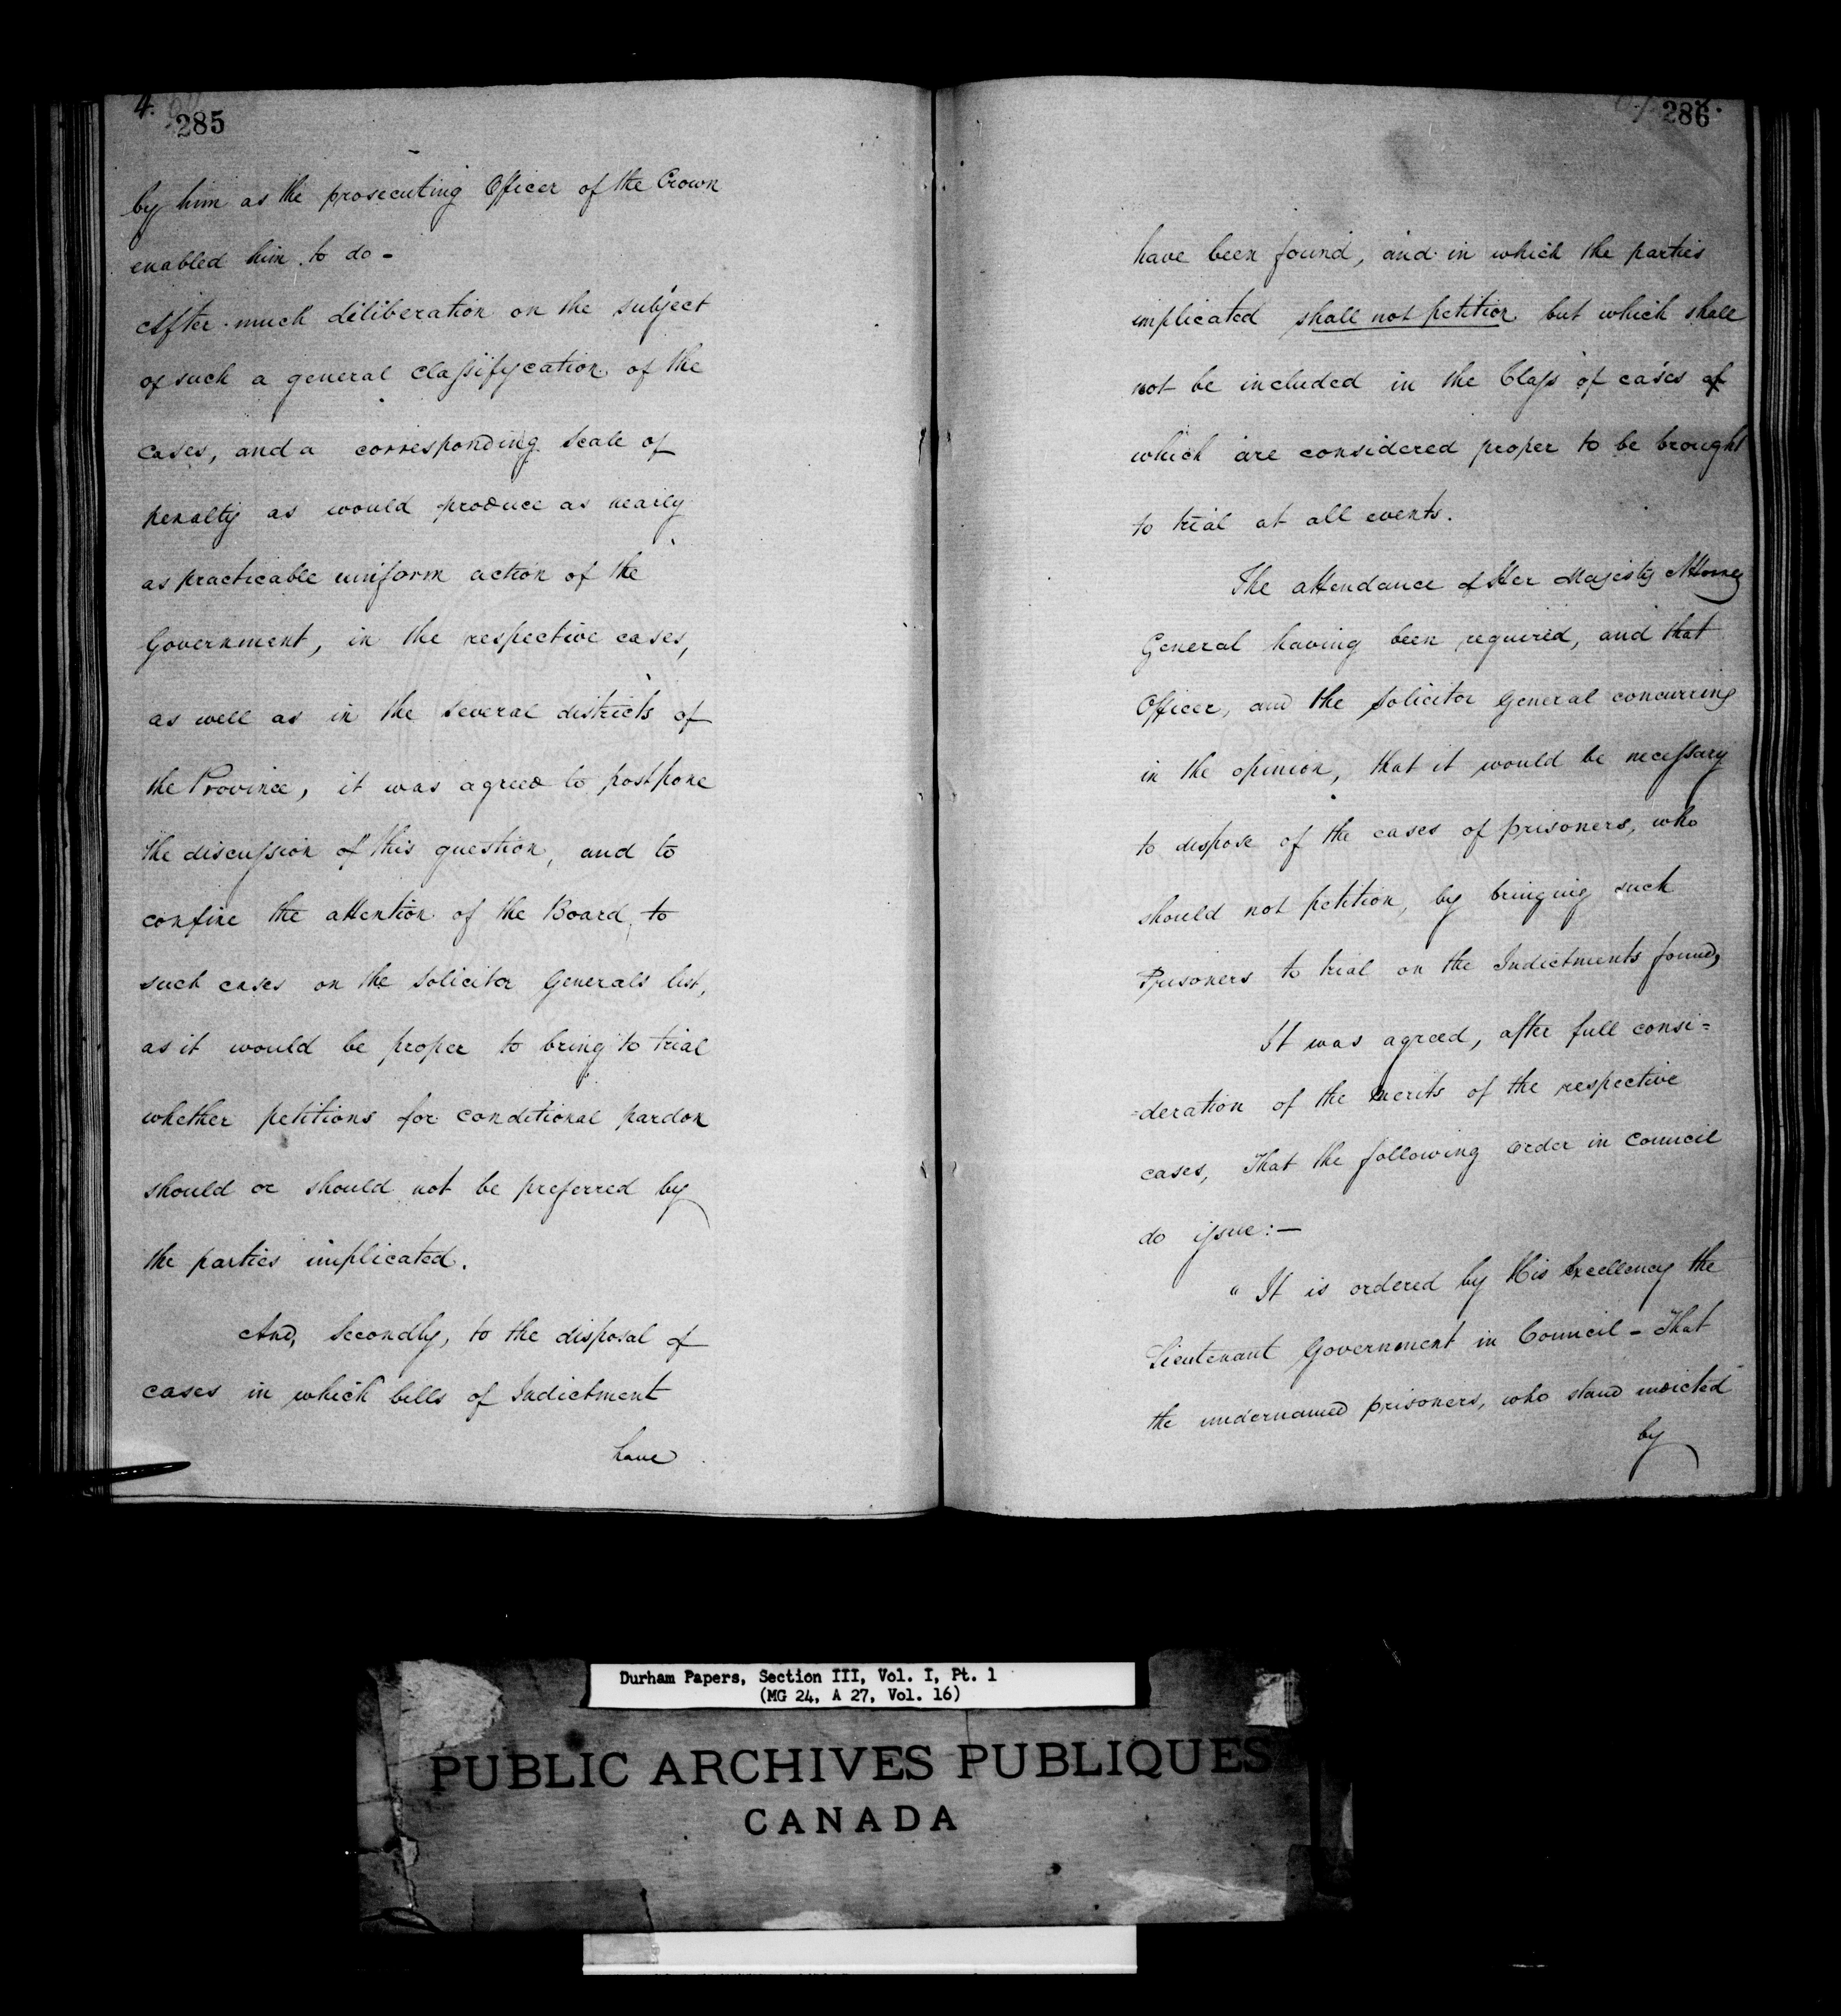 4.
285
by him as the prosecuting Officer of the Crown
enabled him to do -
After much deliberation on the subject
of such a general classifycation of the
cases, and a corresponding scale of
penalty as would produce as nearly
as practicable uniform action of the
Government, in the respective cases,
as well as in the several districts of
the Province, it was agreed to postpone
the discussion of this question, and to
confine the attention of the Board, to
such cases on the Solicitor Generals list,
as it would be proper to bring to trial
whether petitions for conditional pardon
should or should not be preferred by
the parties implicated.
And, Secondly, to the disposal of
cases in which bills of Indictment
have
286
have been found, and in which the parties
implicated shall not petition but which shall
not be included in the Class of cases of
which are considered proper to be brought
to trial at all events.
The attendance of Her Majesty Attorney
General having been required, and that
Officer, and the Solicitor General concurring
in the opinion, that it would be necessary
to dispose of the cases of prisoners, who
should not petition, by bringing such
Prisoners to trial on the Indictments found,
It was agreed, after full consi=
=deration of the merits of the respective
cases, That the following order in Council
do issue:—
"It is ordered by His Excellency the
Lieutenant Government in Council - That
the undernamed prisoners, who stand indicted
by
Durham Papers, Section III, Vol. I, Pt. 1
(MG 24, A 27, Vol. 16)
PUBLIC ARCHIVES PUBLIQUES
CANADA